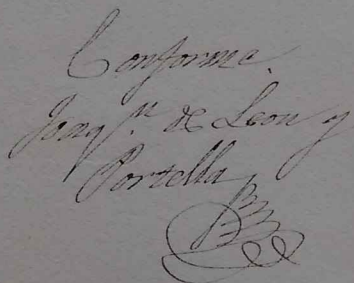 Conforme.
Joaq.n de Leon y
Portella